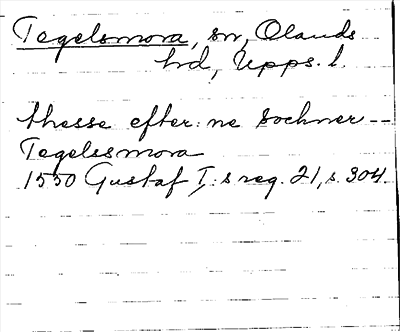 Tegelsmora, sn, Olands
hd, Upps. l.
thesse efter:ne sochner --
Tegelssmora
1550 Gustaf I:s reg. 21, s. 304.